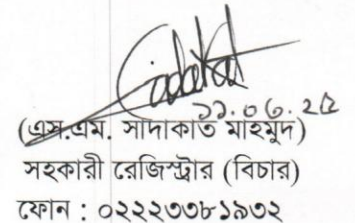 ১১.০৬.২৫
(এস.এম. সাদাকাত মাহমুদ)
সহকারী রেজিস্ট্রার (বিচার)
ফোন : ০২২২৩৩৮১৯৩২